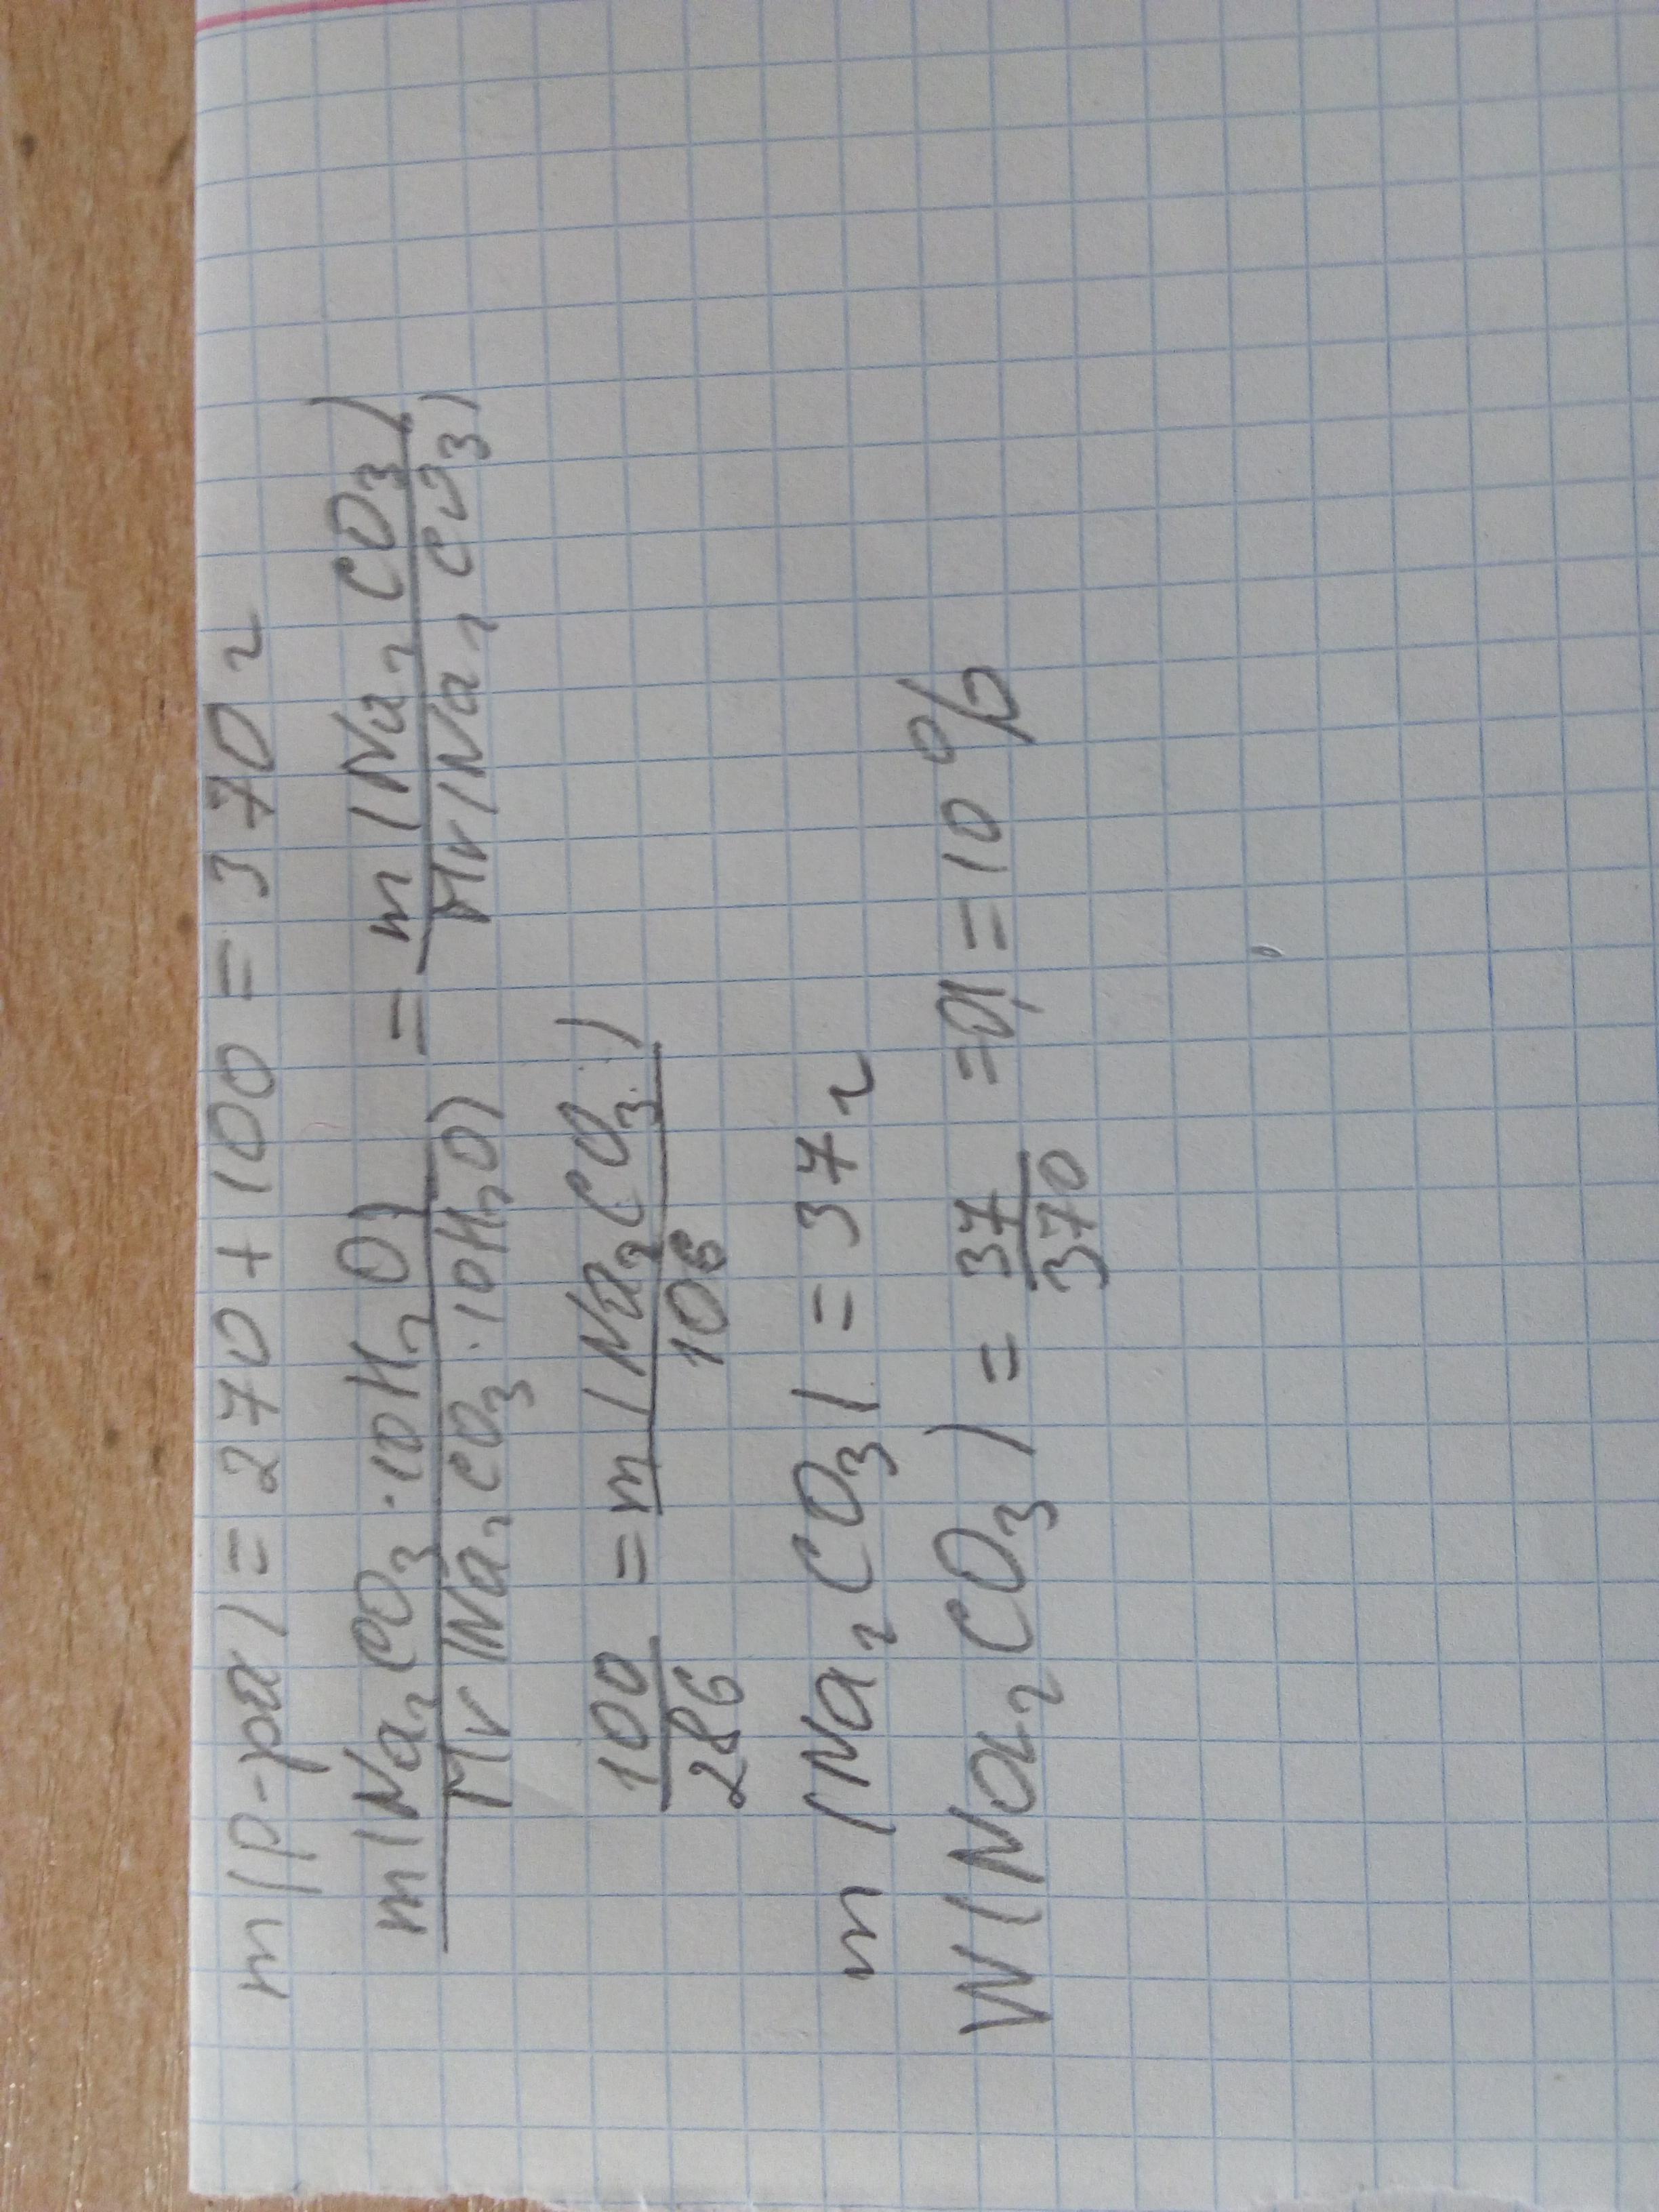 m(р-ра) = 270 + 100 = 370 г
m(Na₂CO₃·10H₂O) / Mr(Na₂CO₃·10H₂O) = m(Na₂CO₃) / Mr(Na₂CO₃)
100/286 = m(Na₂CO₃)/106
m(Na₂CO₃) = 37 г
W(Na₂CO₃) = 37/370 = 0,1 = 10 %